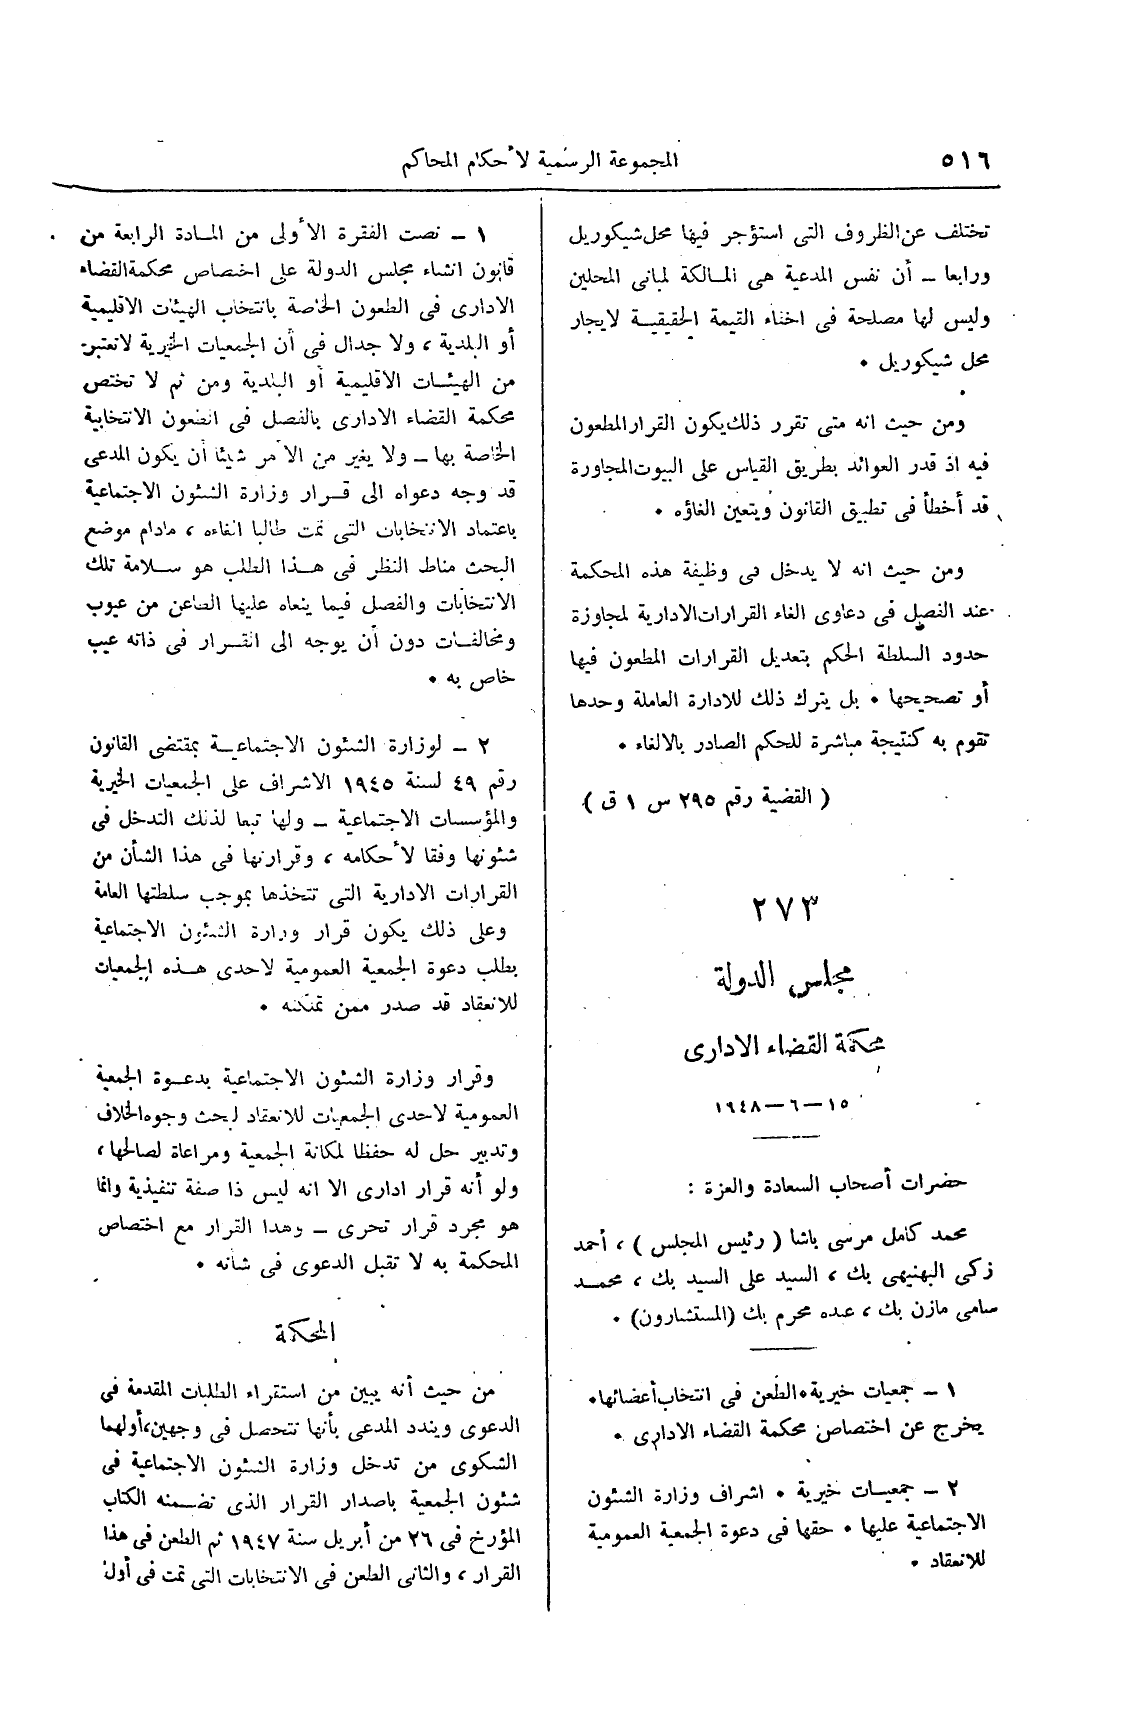 ٥١٦
المجموعة الرسمية لأحكام المحاكم
تختلف عن الظروف التى استؤجر فيها محل شيكوريل
ورابعا ــ أن نفس المدعية هى المالكة لمبانى المحلين
وليس لها مصلحة فى اخفاء القيمة الحقيقية لايجار
محل شيكوريل .
ومن حيث انه متى تقرر ذلك يكون القرار المطعون
فيه اذ قدر العوائد بطريق القياس على البيوت المجاورة
قد أخطأ فى تطبيق القانون ويتعين الغاؤه .
ومن حيث انه لا يدخل فى وظيفة هذه المحكمة
عند الفصل فى دعاوى الغاء القرارات الادارية لمجاوزة
حدود السلطة الحكم بتعديل القرارات المطعون فيها
أو تصحيحها . بل يترك ذلك للادارة العاملة وحدها
تقوم به كنتيجة مباشرة للحكم الصادر بالالغاء .
( القضية رقم ٢٩٥ س ١ ق )
٢٧٣
مجلس الدولة
محكمة القضاء الادارى
١٥ــ٦ــ١٩٤٨
حضرات أصحاب السعادة والعزة :
محمد كامل مرسى باشا ( رئيس المجلس ) ، أحمد
زكى البهنيهى بك ، السيد على السيد بك ، محمــد
سامى مازن بك ، عبده محرم بك (المستشارون) .
١ ــ جمعيات خيرية . الطعن فى انتخاب أعضائها .
يخرج عن اختصاص محكمة القضاء الادارى .
٢ ــ جمعيــات خيرية . اشراف وزارة الشئون
الاجتماعية عليها . حقها فى دعوة الجمعية العمومية
للانعقاد .
١ ــ نصت الفقرة الأولى من المــادة الرابعة من
قانون انشاء مجلس الدولة على اختصاص محكمة القضاء
الادارى فى الطعون الخاصة بانتخاب الهيئات الاقليمية
أو البلدية ، ولا جدال فى أن الجمعيات الخيرية لا تعتبر
من الهيئــات الاقليمية أو البلدية ومن ثم لا تختص
محكمة القضاء الادارى بالفصل فى الطعون الانتخابية
الخاصة بها ــ ولا يغير من الأمر شيئا أن يكون المدعى
قد وجه دعواه الى قــرار وزارة الشئون الاجتماعية
باعتماد الانتخابات التى تمت طالبا الغاءه ، مادام موضع
البحث مناط النظر فى هــذا الطلب هو ســلامة تلك
الانتخابات والفصل فيما ينعاه عليها الطاعن من عيوب
ومخالفــات دون أن يوجه الى القــرار فى ذاته عيب
خاص به .
٢ ــ لوزارة الشئون الاجتماعيــة بمقتضى القانون
رقم ٤٩ لسنة ١٩٤٥ الاشراف على الجمعيات الخيرية
والمؤسسات الاجتماعية ــ ولها تبعا لذلك التدخل فى
شئونها وفقا لأحكامه ، وقرارتها فى هذا الشأن من
القرارات الادارية التى تتخذها بموجب سلطتها العامة
وعلى ذلك يكون قرار وزارة الشئون الاجتماعية
بطلب دعوة الجمعية العمومية لاحدى هــذه الجمعيات
للانعقاد قد صدر ممن تملكه .
وقرار وزارة الشئون الاجتماعية بدعــوة الجمعية
العمومية لاحدى الجمعيات للانعقاد لبحث وجوه الخلاف
وتدبير حل له حفظا لمكانة الجمعية ومراعاة لصالحها ،
ولو أنه قرار ادارى الا انه ليس ذا صفة تنفيذية وانما
هو مجرد قرار تحرى ــ وهذا القرار مع اختصاص
المحكمة به لا تقبل الدعوى فى شأنه .
المحكمة
من حيث أنه يبين من استقراء الطلبات المقدمة فى
الدعوى ويندد المدعى بأنها تتحصل فى وجهين ، أولهما
الشكوى من تدخل وزارة الشئون الاجتماعية فى
شئون الجمعية باصدار القرار الذى تضــمنه الكتاب
المؤرخ فى ٢٦ من أبريل سنة ١٩٤٧ ثم الطعن فى هذا
القرار ، والثانى الطعن فى الانتخابات التى تمت فى أول